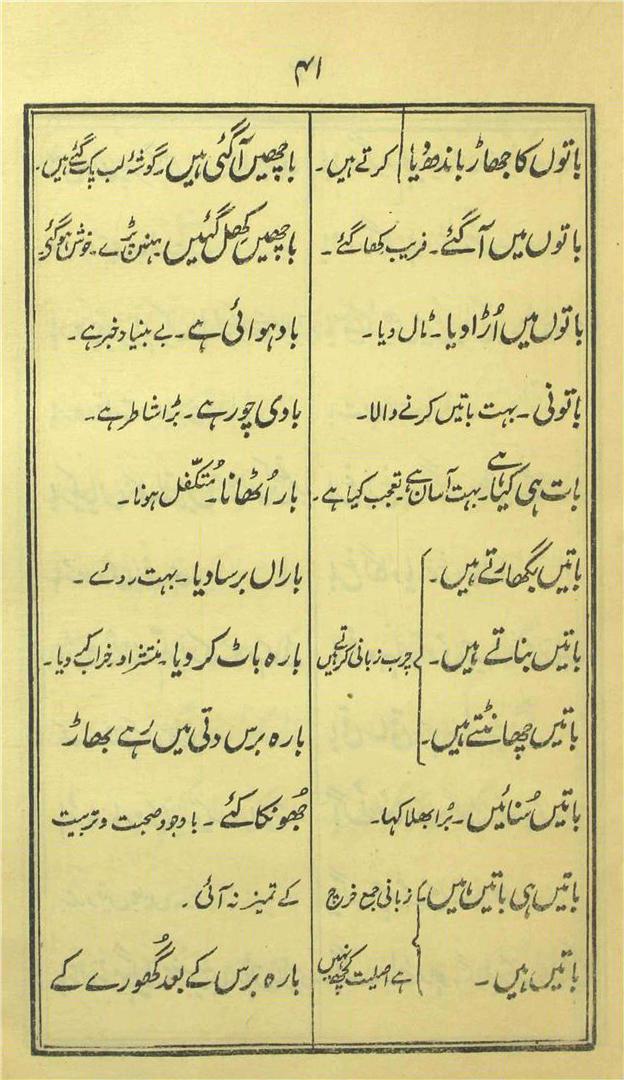 ۴۱
باتوں کا جھاڑ باندھ دیا | کرتے ہیں۔
باتوں میں آ گئے۔ فریب کھا گئے۔
باتوں میں اُڑا دیا۔ ٹال دیا۔
باتونی۔ بہت باتیں کرنے والا۔
بات ہی کیا ہے۔ بہت آسان ہے، تعجب کیا ہے۔
باتیں بگھارتے ہیں۔
باتیں بناتے ہیں۔ چرب زبانی کرتے ہیں
باتیں چھانٹتے ہیں۔
باتیں سُنائیں۔ بُرا بھلا کہا۔
باتیں ہی باتیں ہیں زبانی جمع خرچ
باتیں ہیں۔ ہے اصلیت کچھ نہیں
باچھیں آ گئی ہیں۔ گوشۂ لب پک گئے ہیں۔
باچھیں کھل گئیں۔ ہنس پڑے۔ خوش ہو گئے
باد ہوائی ہے۔ بے بنیاد خبر ہے۔
بادی چور ہے۔ بڑا شاطر ہے۔
بار اُٹھانا۔ مُتکفّل ہونا۔
باراں برسا دیا۔ بہت روئے۔
بارہ باٹ کر دیا۔ منتشر اور خراب کر دیا۔
بارہ برس دتی میں رہے بھاڑ
جُھونکا کئے۔ باوجود صحبت و تربیت
کے تمیز نہ آئی۔
بارہ برس کے بعد گُھورے کے